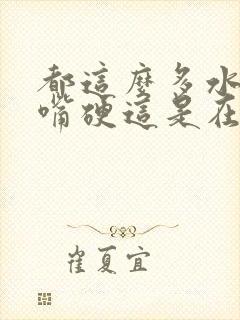 都這麼多水
嘴硬這是在
崔夏宜